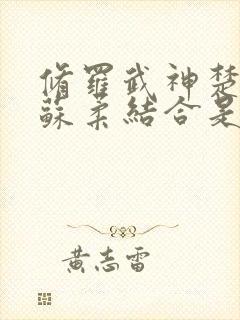 修羅武神楚
蘇柔結合是
黃志雷